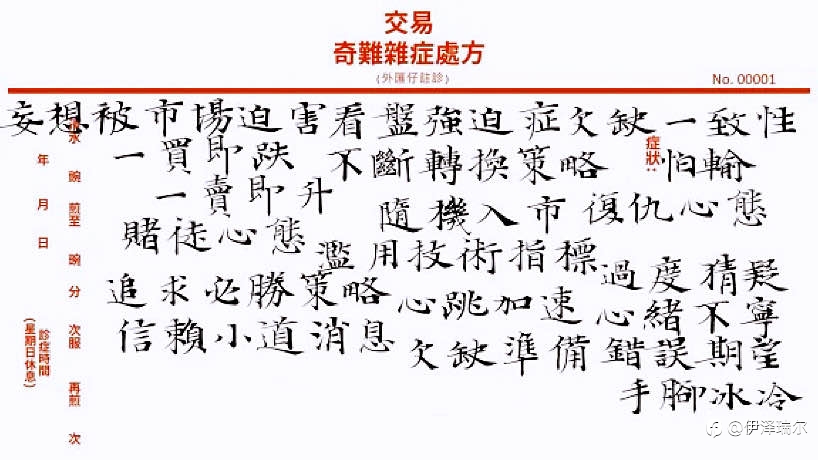 交易
奇難雜症處方
(外匯仔註診)
No. 00001
妄想被市場迫害看盤強迫症欠缺一致性
一買即跌 不斷轉換策略 怕輸
一賣即升 隨機入市 復仇心態
賭徒心態 濫用技術指標 過度猜疑
追求必勝策略 心跳加速 心緒不寧
信賴小道消息 欠缺準備 錯誤期望
手腳冰冷
症狀：
水 碗 煎至 碗 分 次服 再煎 次
年 月 日
診症時間
(星期日休息)
@伊泽瑞尔